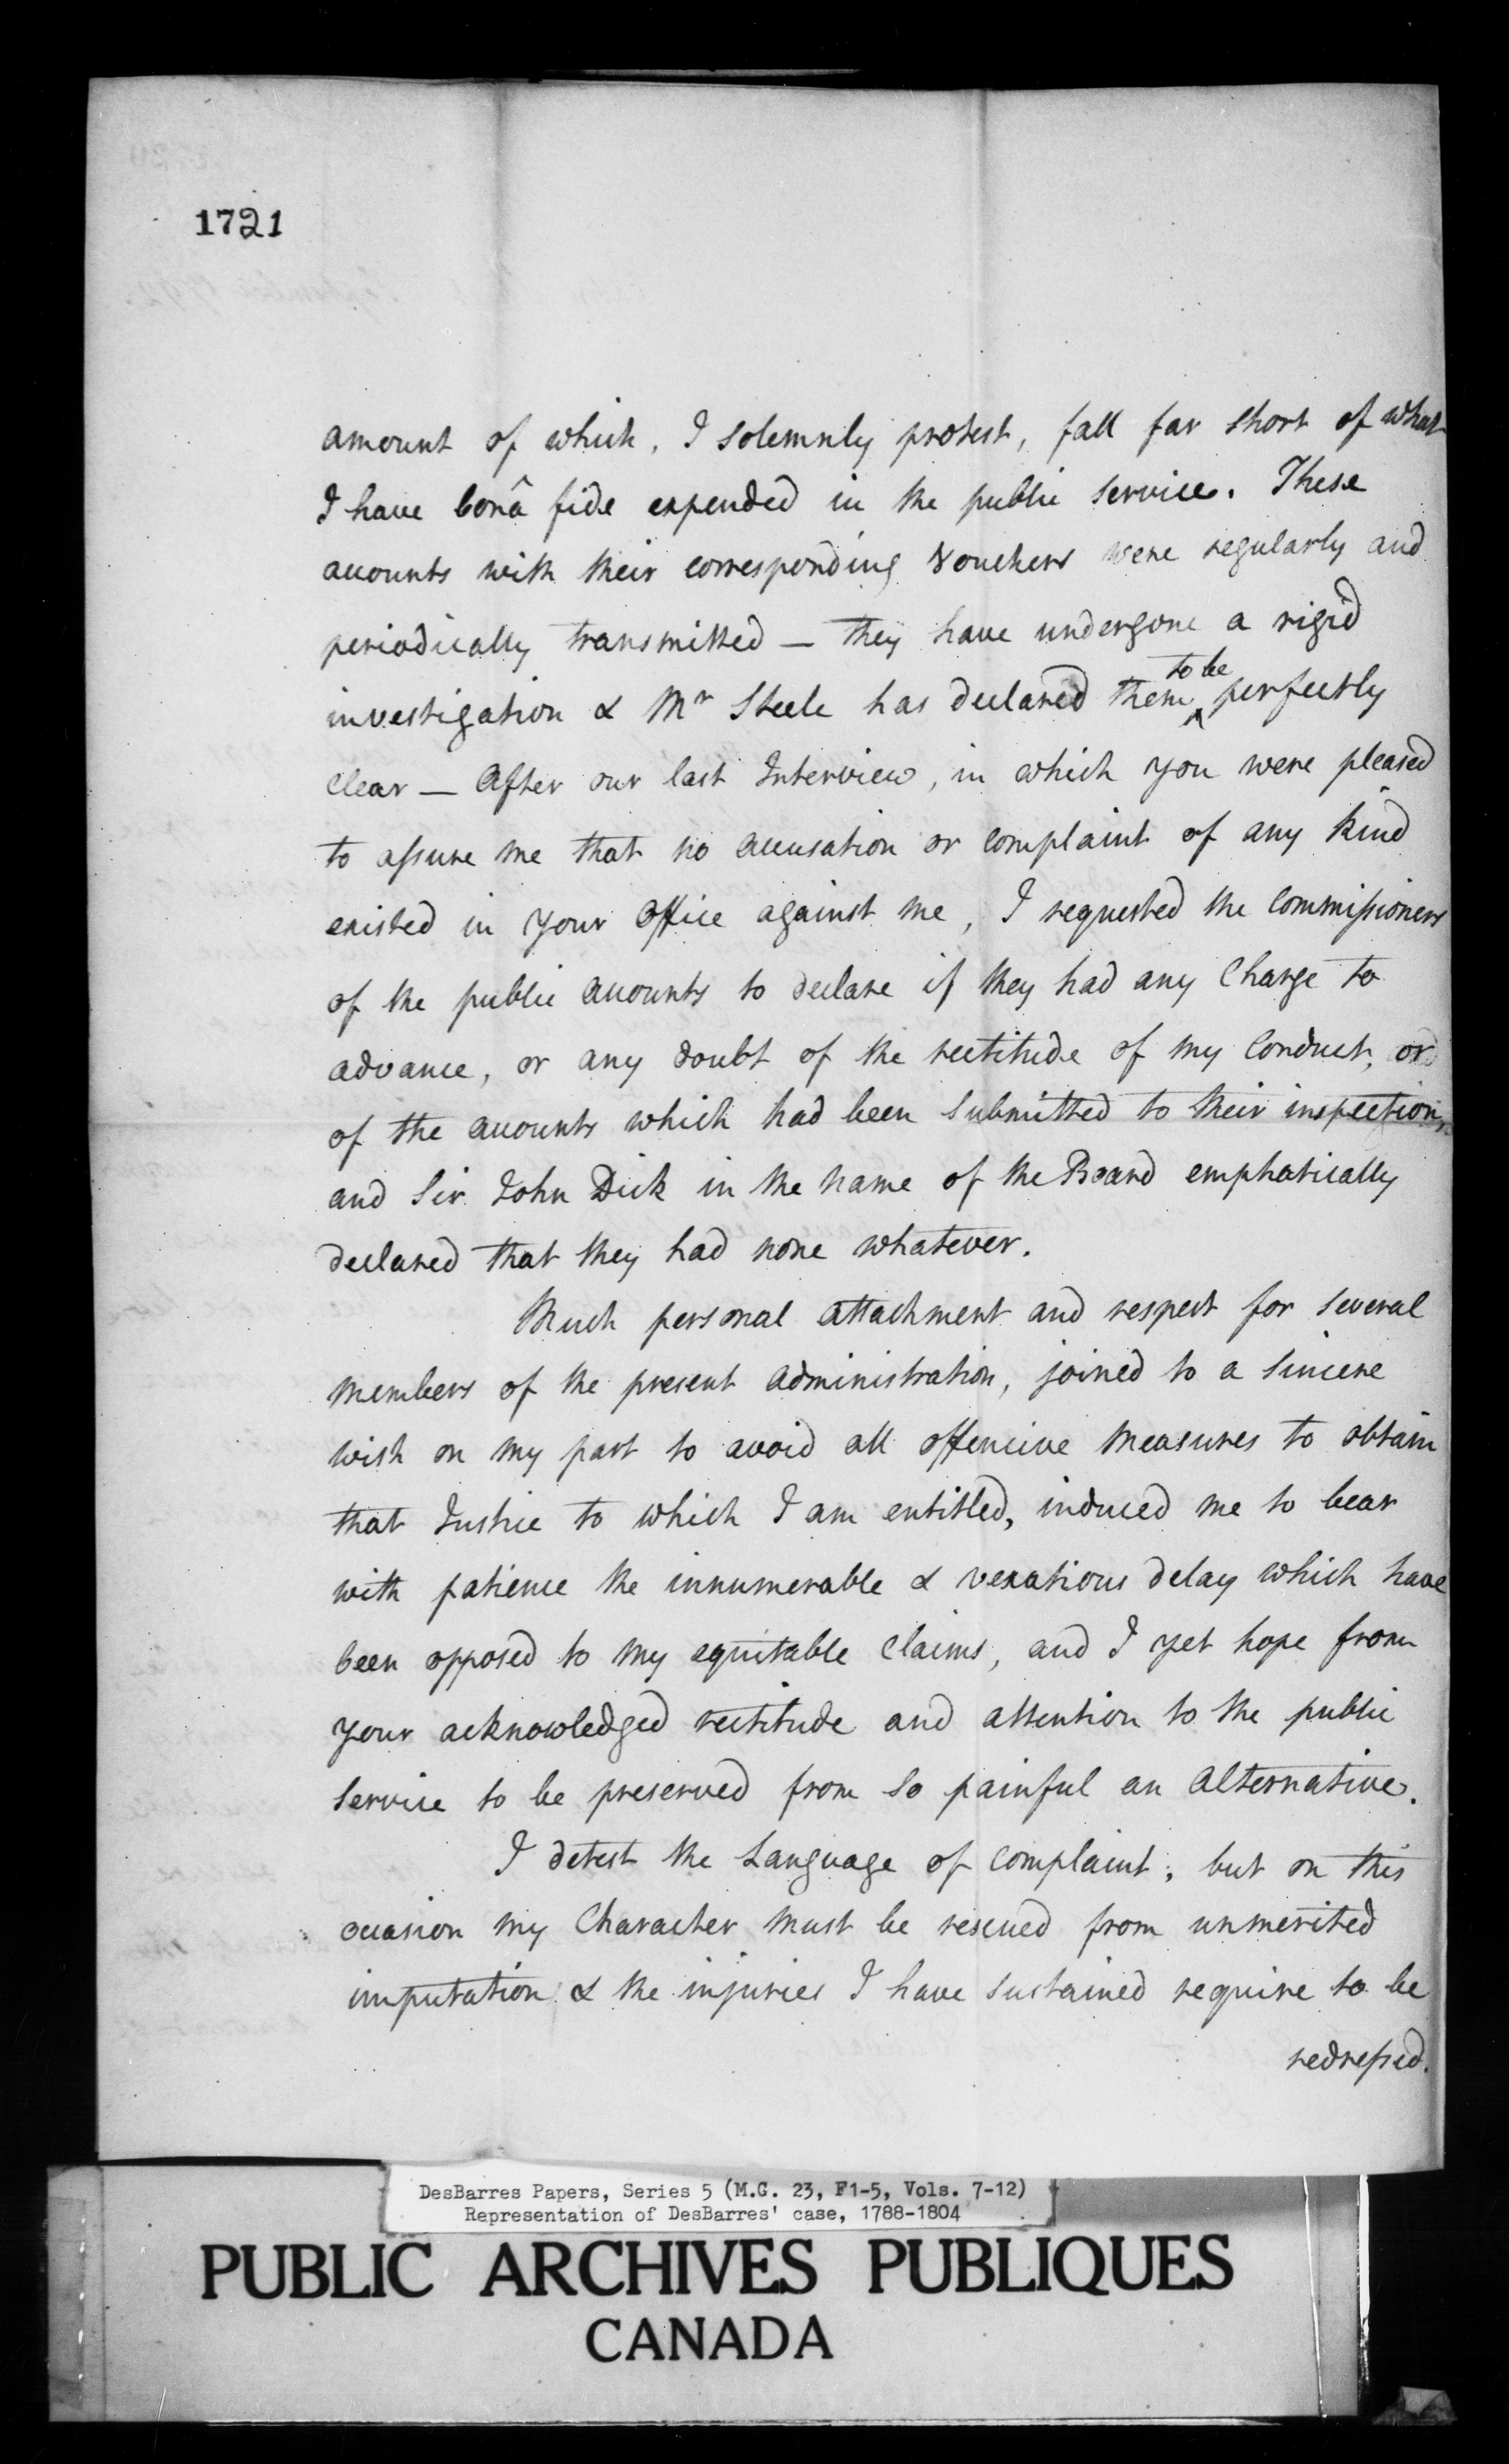 1721
amount of which, I solemnly protest, fall far short of what
I have bonâ fide expended in the public service. These
accounts with their corresponding Vouchers were regularly and
periodically transmitted — they have undergone a rigid
investigation & Mr Steele has declared them to be perfectly
clear — After our last Interview, in which you were pleased
to assure me that no accusation or complaint of any kind
existed in your Office against me, I requested the Commissioners
of the public accounts to declare if they had any Charge to
advance, or any doubt of the rectitude of my Conduct, or
of the accounts which had been submitted to their inspection,
and Sir John Dick in the name of the Board emphatically
declared that they had none whatever.
Much personal attachment and respect for several
members of the present administration, joined to a sincere
wish on my part to avoid all offencive measures to obtain
that Justice to which I am entitled, induced me to bear
with patience the innumerable & vexatious delay which have
been opposed to my equitable Claims, and I yet hope from
your acknowledged rectitude and attention to the public
service to be preserved from so painful an alternative.
I detest the Language of Complaint, but on this
occasion my Character must be rescued from unmerited
imputation & the injuries I have sustained require to be
redressed.
DesBarres Papers, Series 5 (M.G. 23, F1-5, Vols. 7-12)
Representation of DesBarres' case, 1788-1804
PUBLIC ARCHIVES PUBLIQUES
CANADA